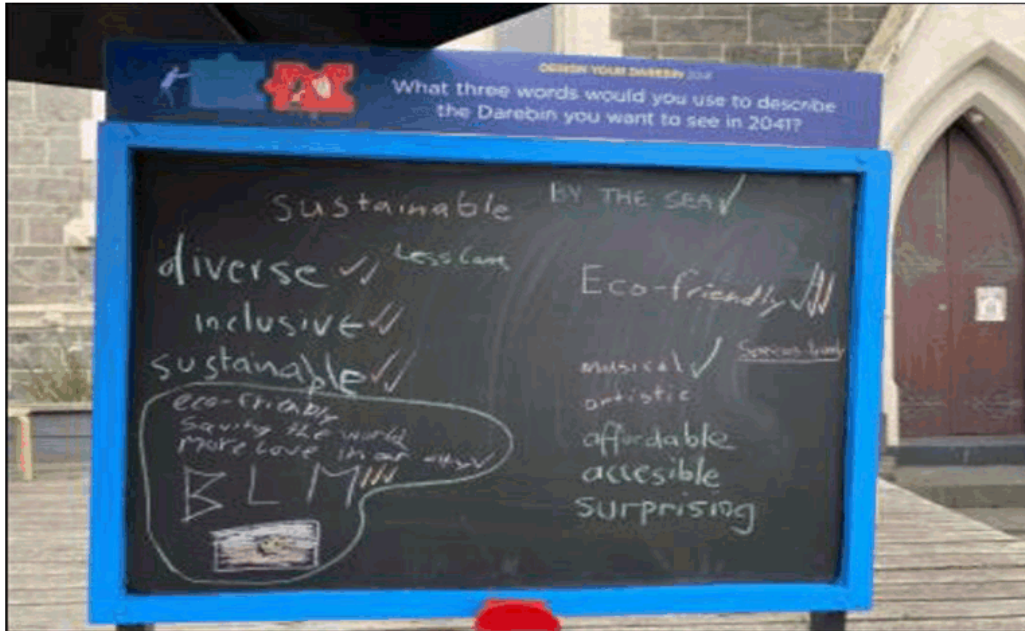 DESIGN YOUR DAREBIN 2041
What three words would you use to describe
the Darebin you want to see in 2041?
sustainable
BY THE SEA
diverse
Less
inclusive
sustainable
eco-friendly
saving the world
More Love in our
BLM
Eco-friendly
musical
artistic
affordable
accesible
surprising